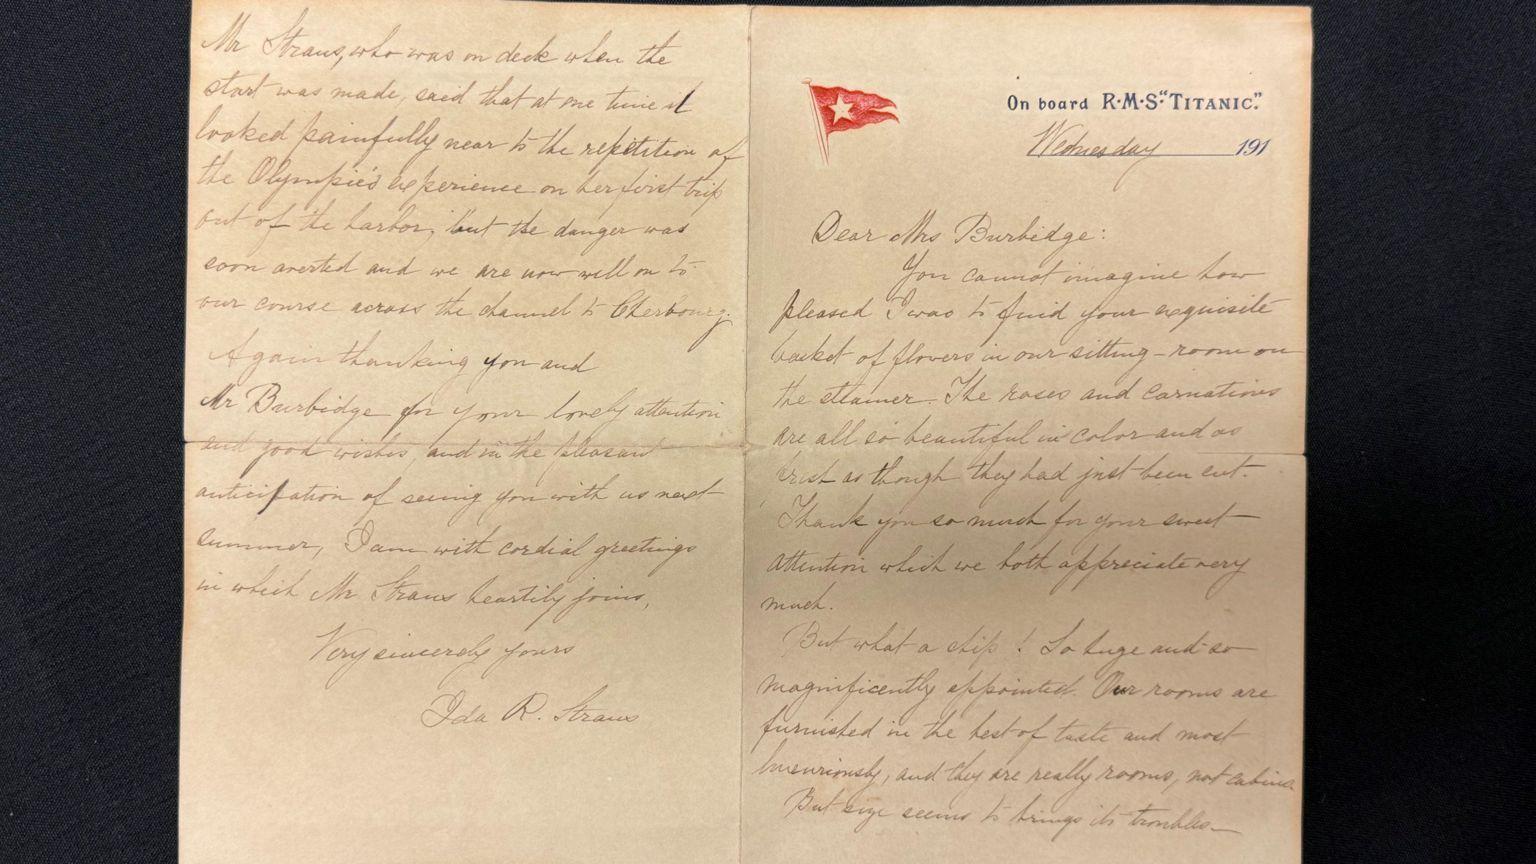 On board R·M·S "TITANIC."
Wednesday 191
Dear Mrs Burbidge:
You cannot imagine how
pleased I was to find your exquisite
basket of flowers in our sitting-room on
the steamer. The roses and carnations
are all so beautiful in color and as
fresh as though they had just been cut.
Thank you so much for your sweet
attention which we both appreciate very
much.
But what a ship! So huge and so
magnificently appointed. Our rooms are
furnished in the best of taste and most
luxuriously, and they are really rooms, not cabins.
But size seems to bring its troubles—
Mr Straus, who was on deck when the
start was made, said that at one time it
looked painfully near to the repetition of
the Olympic's experience on her first trip
out of the harbor, but the danger was
soon averted and we are now well on to
our course across the channel to Cherbourg.
Again thanking you and
Mr Burbidge for your lovely attention
and good wishes, and in the pleasant
anticipation of seeing you with us next
summer, I am with cordial greetings
in which Mr Straus heartily joins,
Very sincerely yours
Ida R. Straus